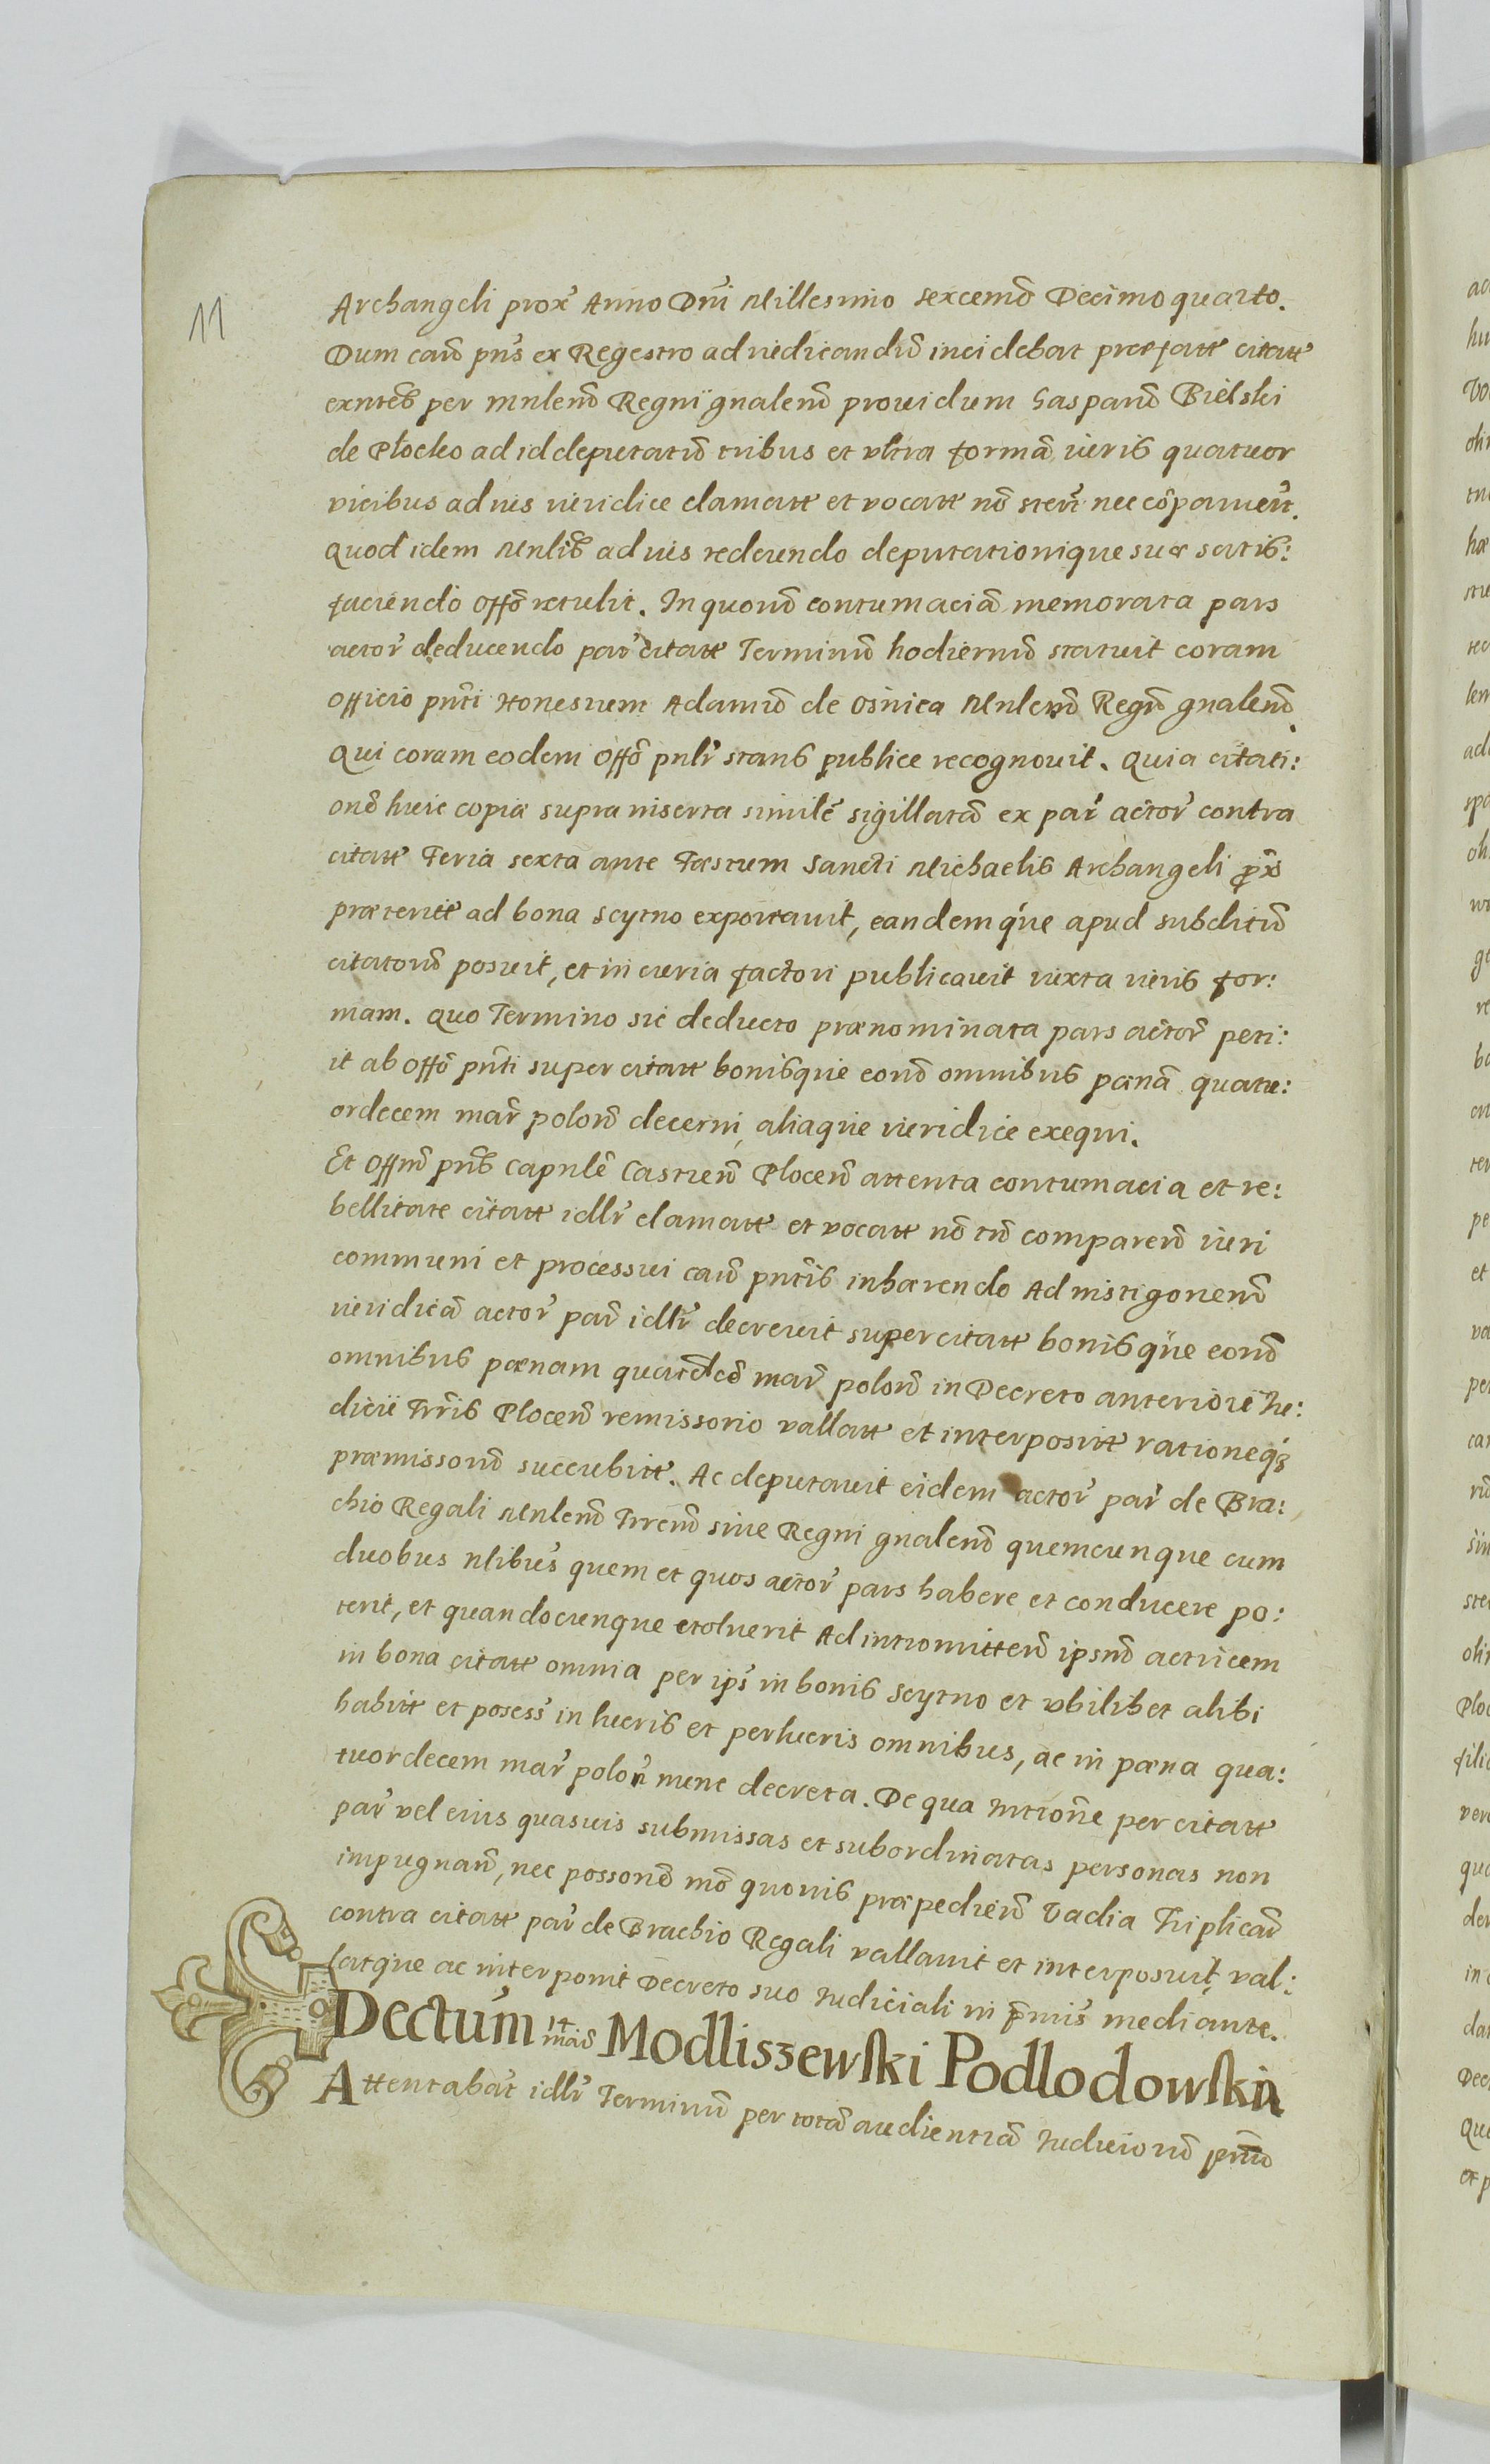 11
Archangeli prox' Anno Dni Millesimo sexcenō Decimo quarto.
Dum caūō pns ex Regestro ad iudicandū incidebat praefatt citatt
exnteß per mnlenō Regni gnalenō prouidum Gasparū Bielski
de Płocko ad id deputatū tribus et vltra formā iuris quatuor
vicibus ad ius iuridice clamatt et vocatt nō sterūt nec cōparuerūt.
Quod idem Mnlis ad ius redeundo deputationique suæ satis:
faciendo offō retulit. In quorū contumaciā memorata pars
actor' deducendo par' citatt Terminū hodiernū statuit coram
officio pnti Honestum Adamū de Osnica Mnlenō Regni gnalenō.
Qui coram eodem Offō pnlr stans publice recognouit. Quia citati:
onē huic copiæ supra inserta similē sigillatā ex par' actor' contra
citatt Feria sexta ante Festum Sancti Michaelis Archangeli prox
præteritt ad bona Scytno exportauit, eandemque apud subditū
citatorū posuit, et in curia factori publicauit iuxta iuris for:
mam. Quo Termino sic deducto prænominata pars actor' peti:
it ab offō pnti super citatt bonisque eorū omnibus pænā quatu:
ordecem mar' polorū decerni, aliaque iuridice exequi.
Et Offm pns Capnlē Castrenō Plocenō attenta contumacia et re:
bellitate citatt idlr clamatt et vocatt nō tū comparenō iuri
communi et processui caūō pntis inhærendo Ad instigonenō
iuridicā actor' par' idlr decreuit super citatt bonisque eorū
omnibus pænam quatdecē mar' polorū in Decreto anteriori Iu:
dicii Trris Plocenō remissorio vallatt et interpositt rationeq3
præmissorū succubitt. Ac deputauit eidem actor' par' de Bra:
chio Regali Mnlenō Trrenō siue Regni gnalenō quemcunque cum
duobus nlibus quem et quos actor' pars habere et conducere po:
terit, et quandocunque et voluerit Ad intromittenō ipsnō actricem
in bona citatt omnia per ips' in bonis Scytno et vbilibet alibi
habitt et posess' in lucris et perlucris omnibus, ac in pæna qua:
tuordecem mar' polon' nunc decreta. De qua Intrōne per citatt
par' vel eius quasuis submissas et subordinatas personas non
impugnanō, nec possonē mō quouis præpedienō Vadia Triplicā
contra citatt par' de Brachio Regali vallauit et interposuit, val:
latque ac interponit Decreto suo Iudiciali in pmis mediante.
Dectum 14 mar Modliszewski Podlodowski
Attentabat idlr Terminū per totā audientiā Iudiciorū